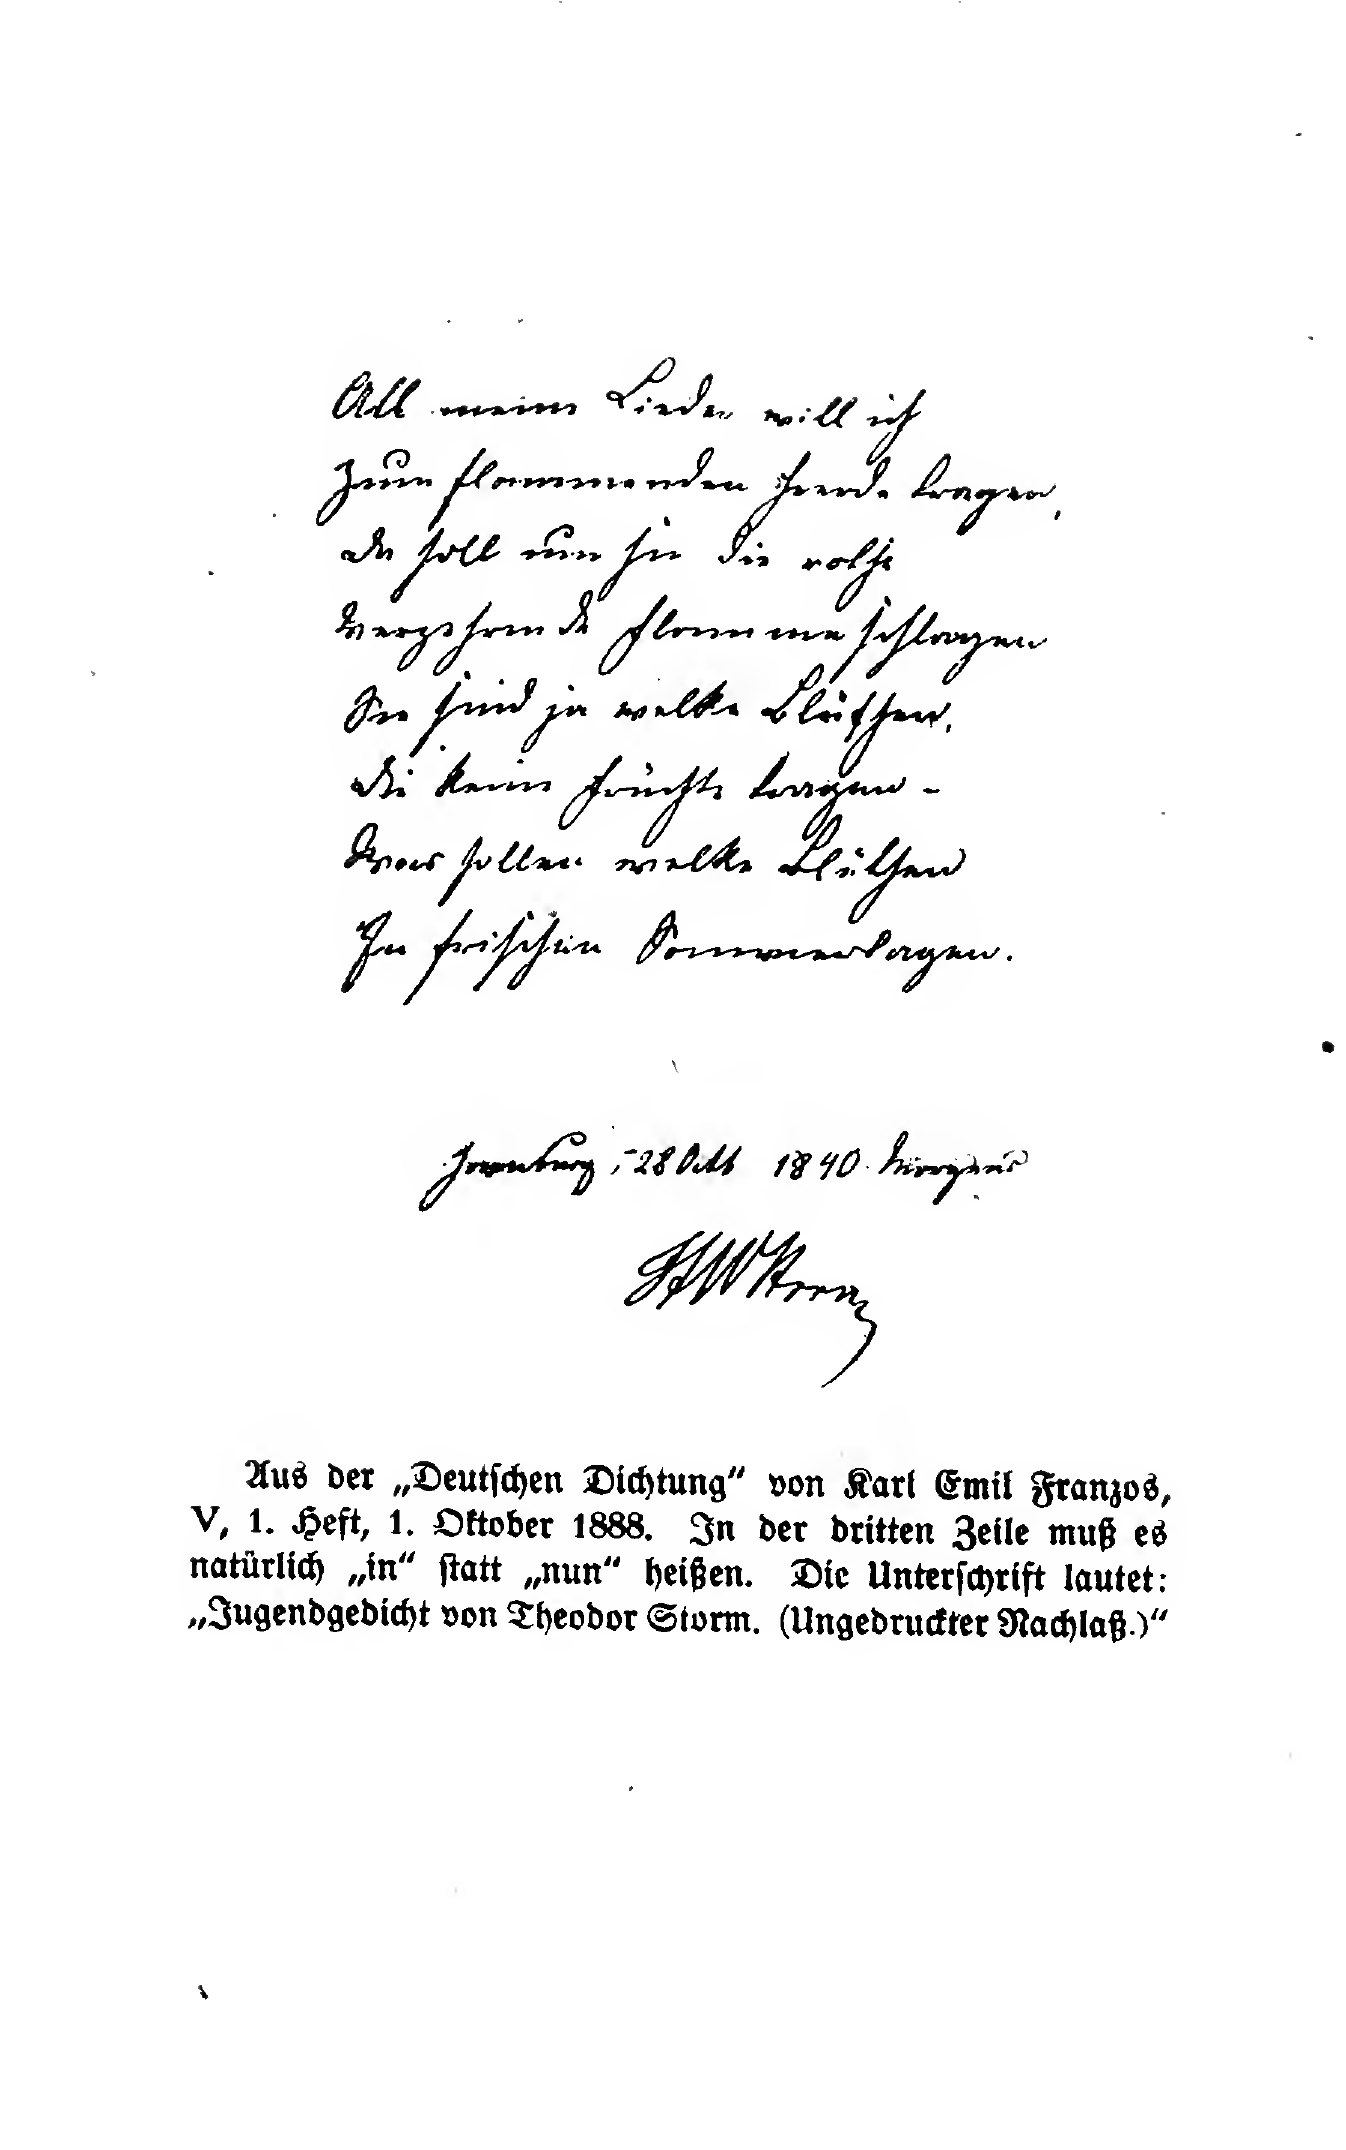 All meine Lieder will ich
Zum flammenden Heerde tragen,
Da soll nun sie die rothe
Verzehrende Flamme schlagen
Sie sind ja welke Blüthen,
Die keine Früchte tragen –
Was sollen welke Blüthen
In frischen Sommertagen.
Hamburg, 28 Octb 1840. Morgens
Storm
Aus der „Deutschen Dichtung“ von Karl Emil Franzos,
V, 1. Heft, 1. Oktober 1888. In der dritten Zeile muß es
natürlich „in“ statt „nun“ heißen. Die Unterschrift lautet:
„Jugendgedicht von Theodor Storm. (Ungedruckter Nachlaß.)“